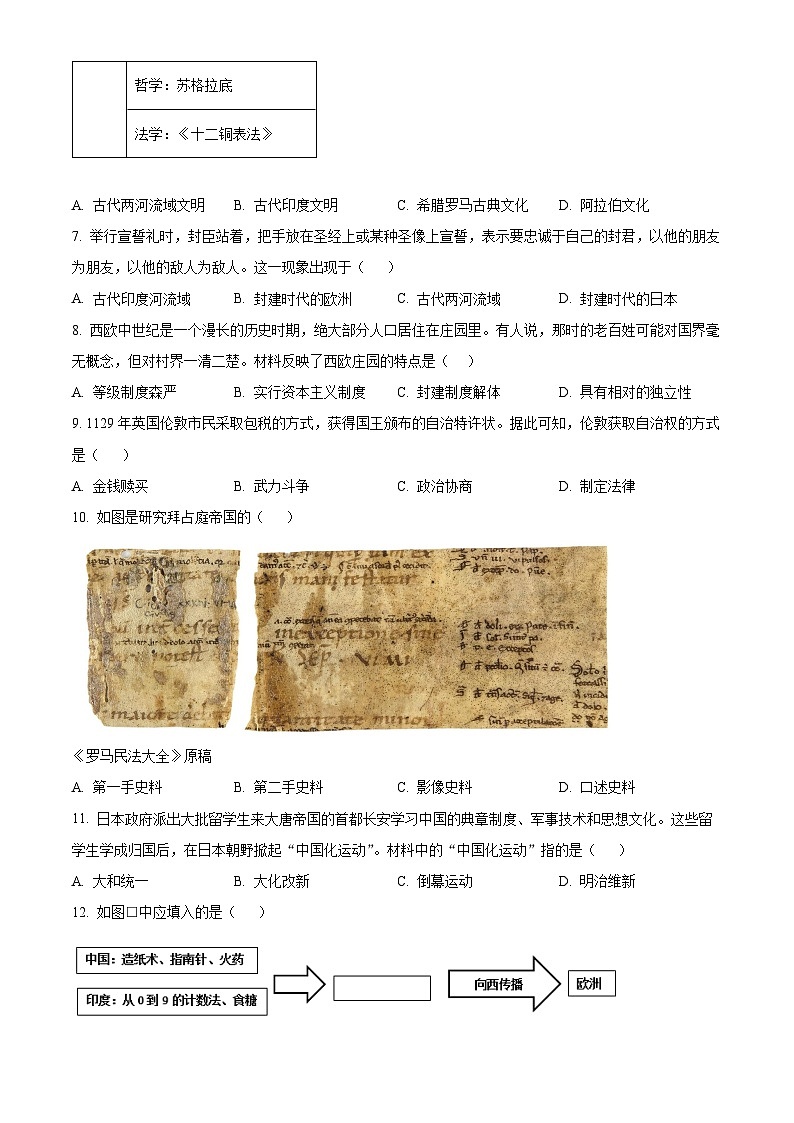 哲学：苏格拉底
法学：《十二铜表法》
A. 古代两河流域文明 B. 古代印度文明 C. 希腊罗马古典文化 D. 阿拉伯文化
7. 举行宣誓礼时，封臣站着，把手放在圣经上或某种圣像上宣誓，表示要忠诚于自己的封君，以他的朋友
为朋友，以他的敌人为敌人。这一现象出现于（ ）
A. 古代印度河流域 B. 封建时代的欧洲 C. 古代两河流域 D. 封建时代的日本
8. 西欧中世纪是一个漫长的历史时期，绝大部分人口居住在庄园里。有人说，那时的老百姓可能对国界毫
无概念，但对村界一清二楚。材料反映了西欧庄园的特点是（ ）
A. 等级制度森严 B. 实行资本主义制度 C. 封建制度解体 D. 具有相对的独立性
9. 1129 年英国伦敦市民采取包税的方式，获得国王颁布的自治特许状。据此可知，伦敦获取自治权的方式
是（ ）
A. 金钱赎买 B. 武力斗争 C. 政治协商 D. 制定法律
10. 如图是研究拜占庭帝国的（ ）
《罗马民法大全》原稿
A. 第一手史料 B. 第二手史料 C. 影像史料 D. 口述史料
11. 日本政府派出大批留学生来大唐帝国的首都长安学习中国的典章制度、军事技术和思想文化。这些留
学生学成归国后，在日本朝野掀起“中国化运动”。材料中的“中国化运动”指的是（ ）
A. 大和统一 B. 大化改新 C. 倒幕运动 D. 明治维新
12. 如图□中应填入的是（ ）
中国：造纸术、指南针、火药
印度：从 0 到 9 的计数法、食糖
向西传播
欧洲